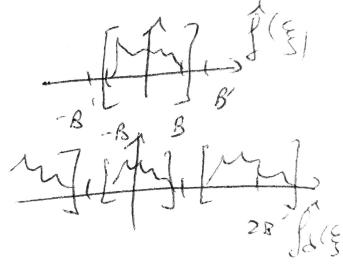 f̂(ξ)
-B' -B B B'
2B' f̂d(ξ